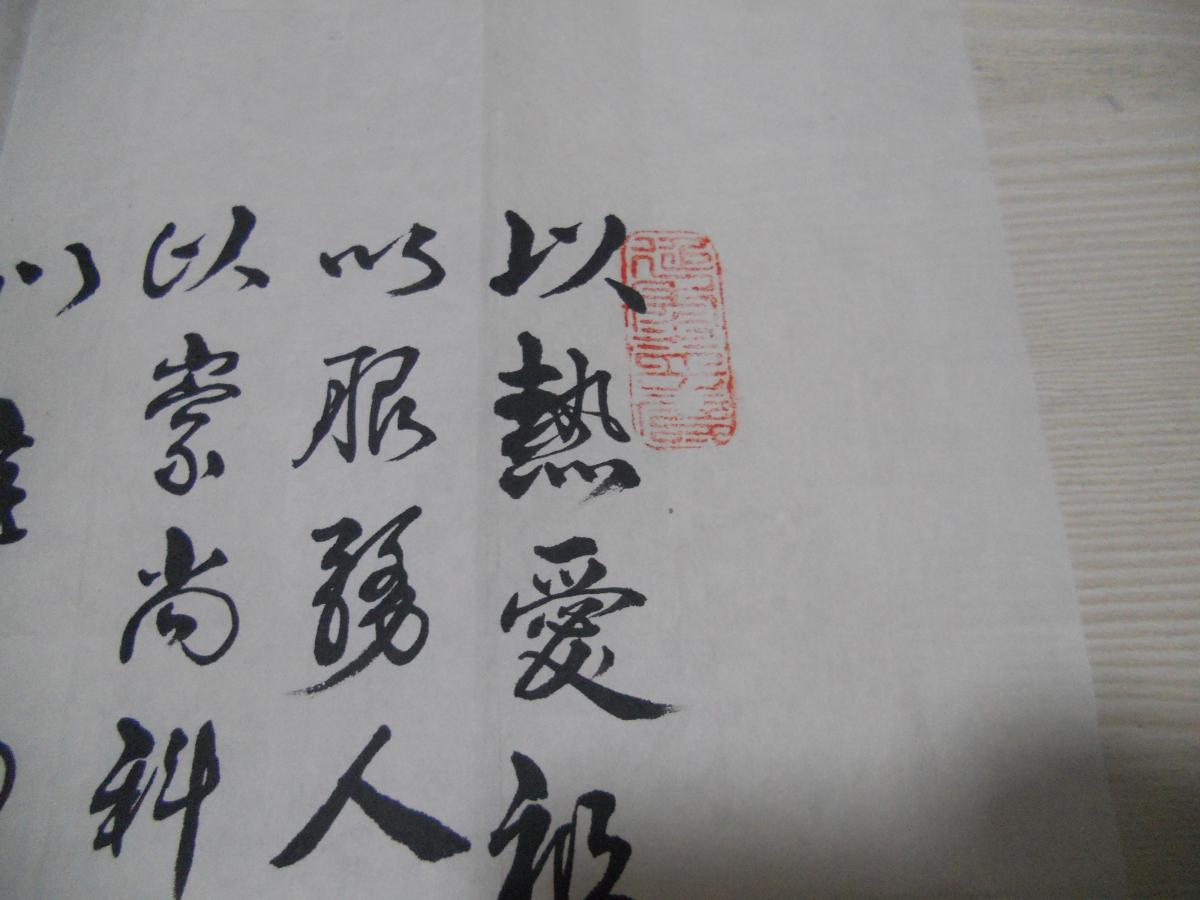 以熱愛祖
以服務人
以崇尚科
以